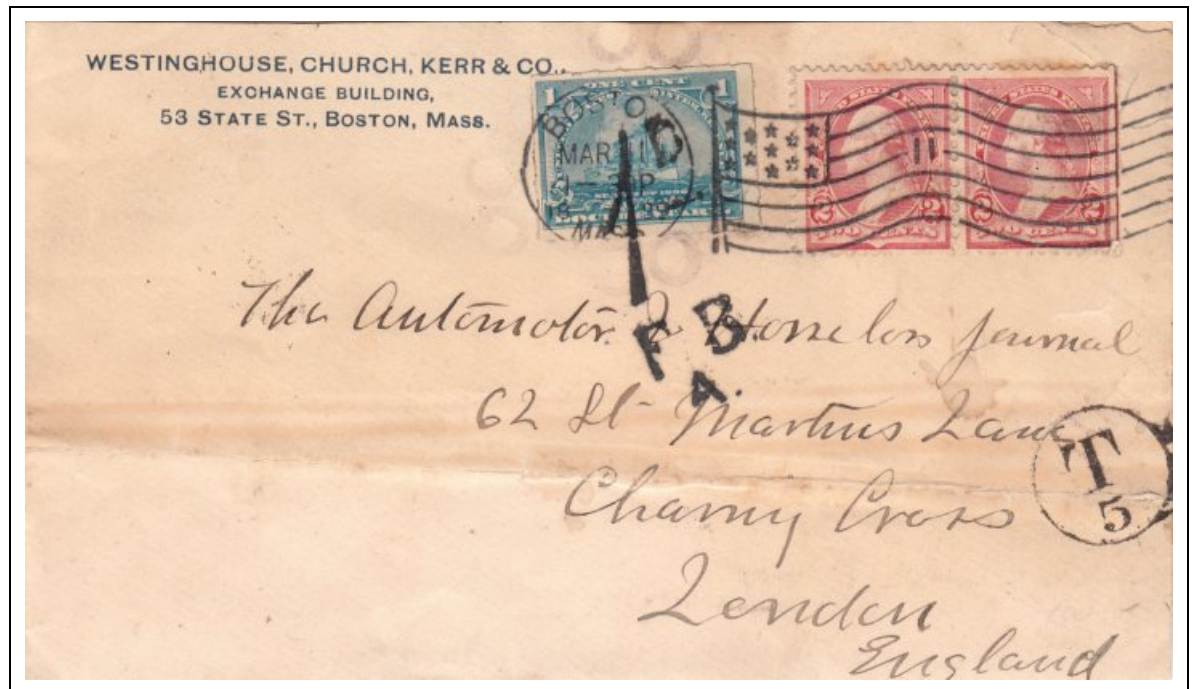 WESTINGHOUSE, CHURCH, KERR & CO.,
EXCHANGE BUILDING,
53 STATE ST., BOSTON, MASS.
1 ONE CENT
BOSTO
MAR 11
MASS
11
2 2
TWO CENTS
2
TWO CENTS
1 D
F B
4.
The Automotor & Horseless Journal
62 St Martins Lane
Charing Cross
London
England
T
5